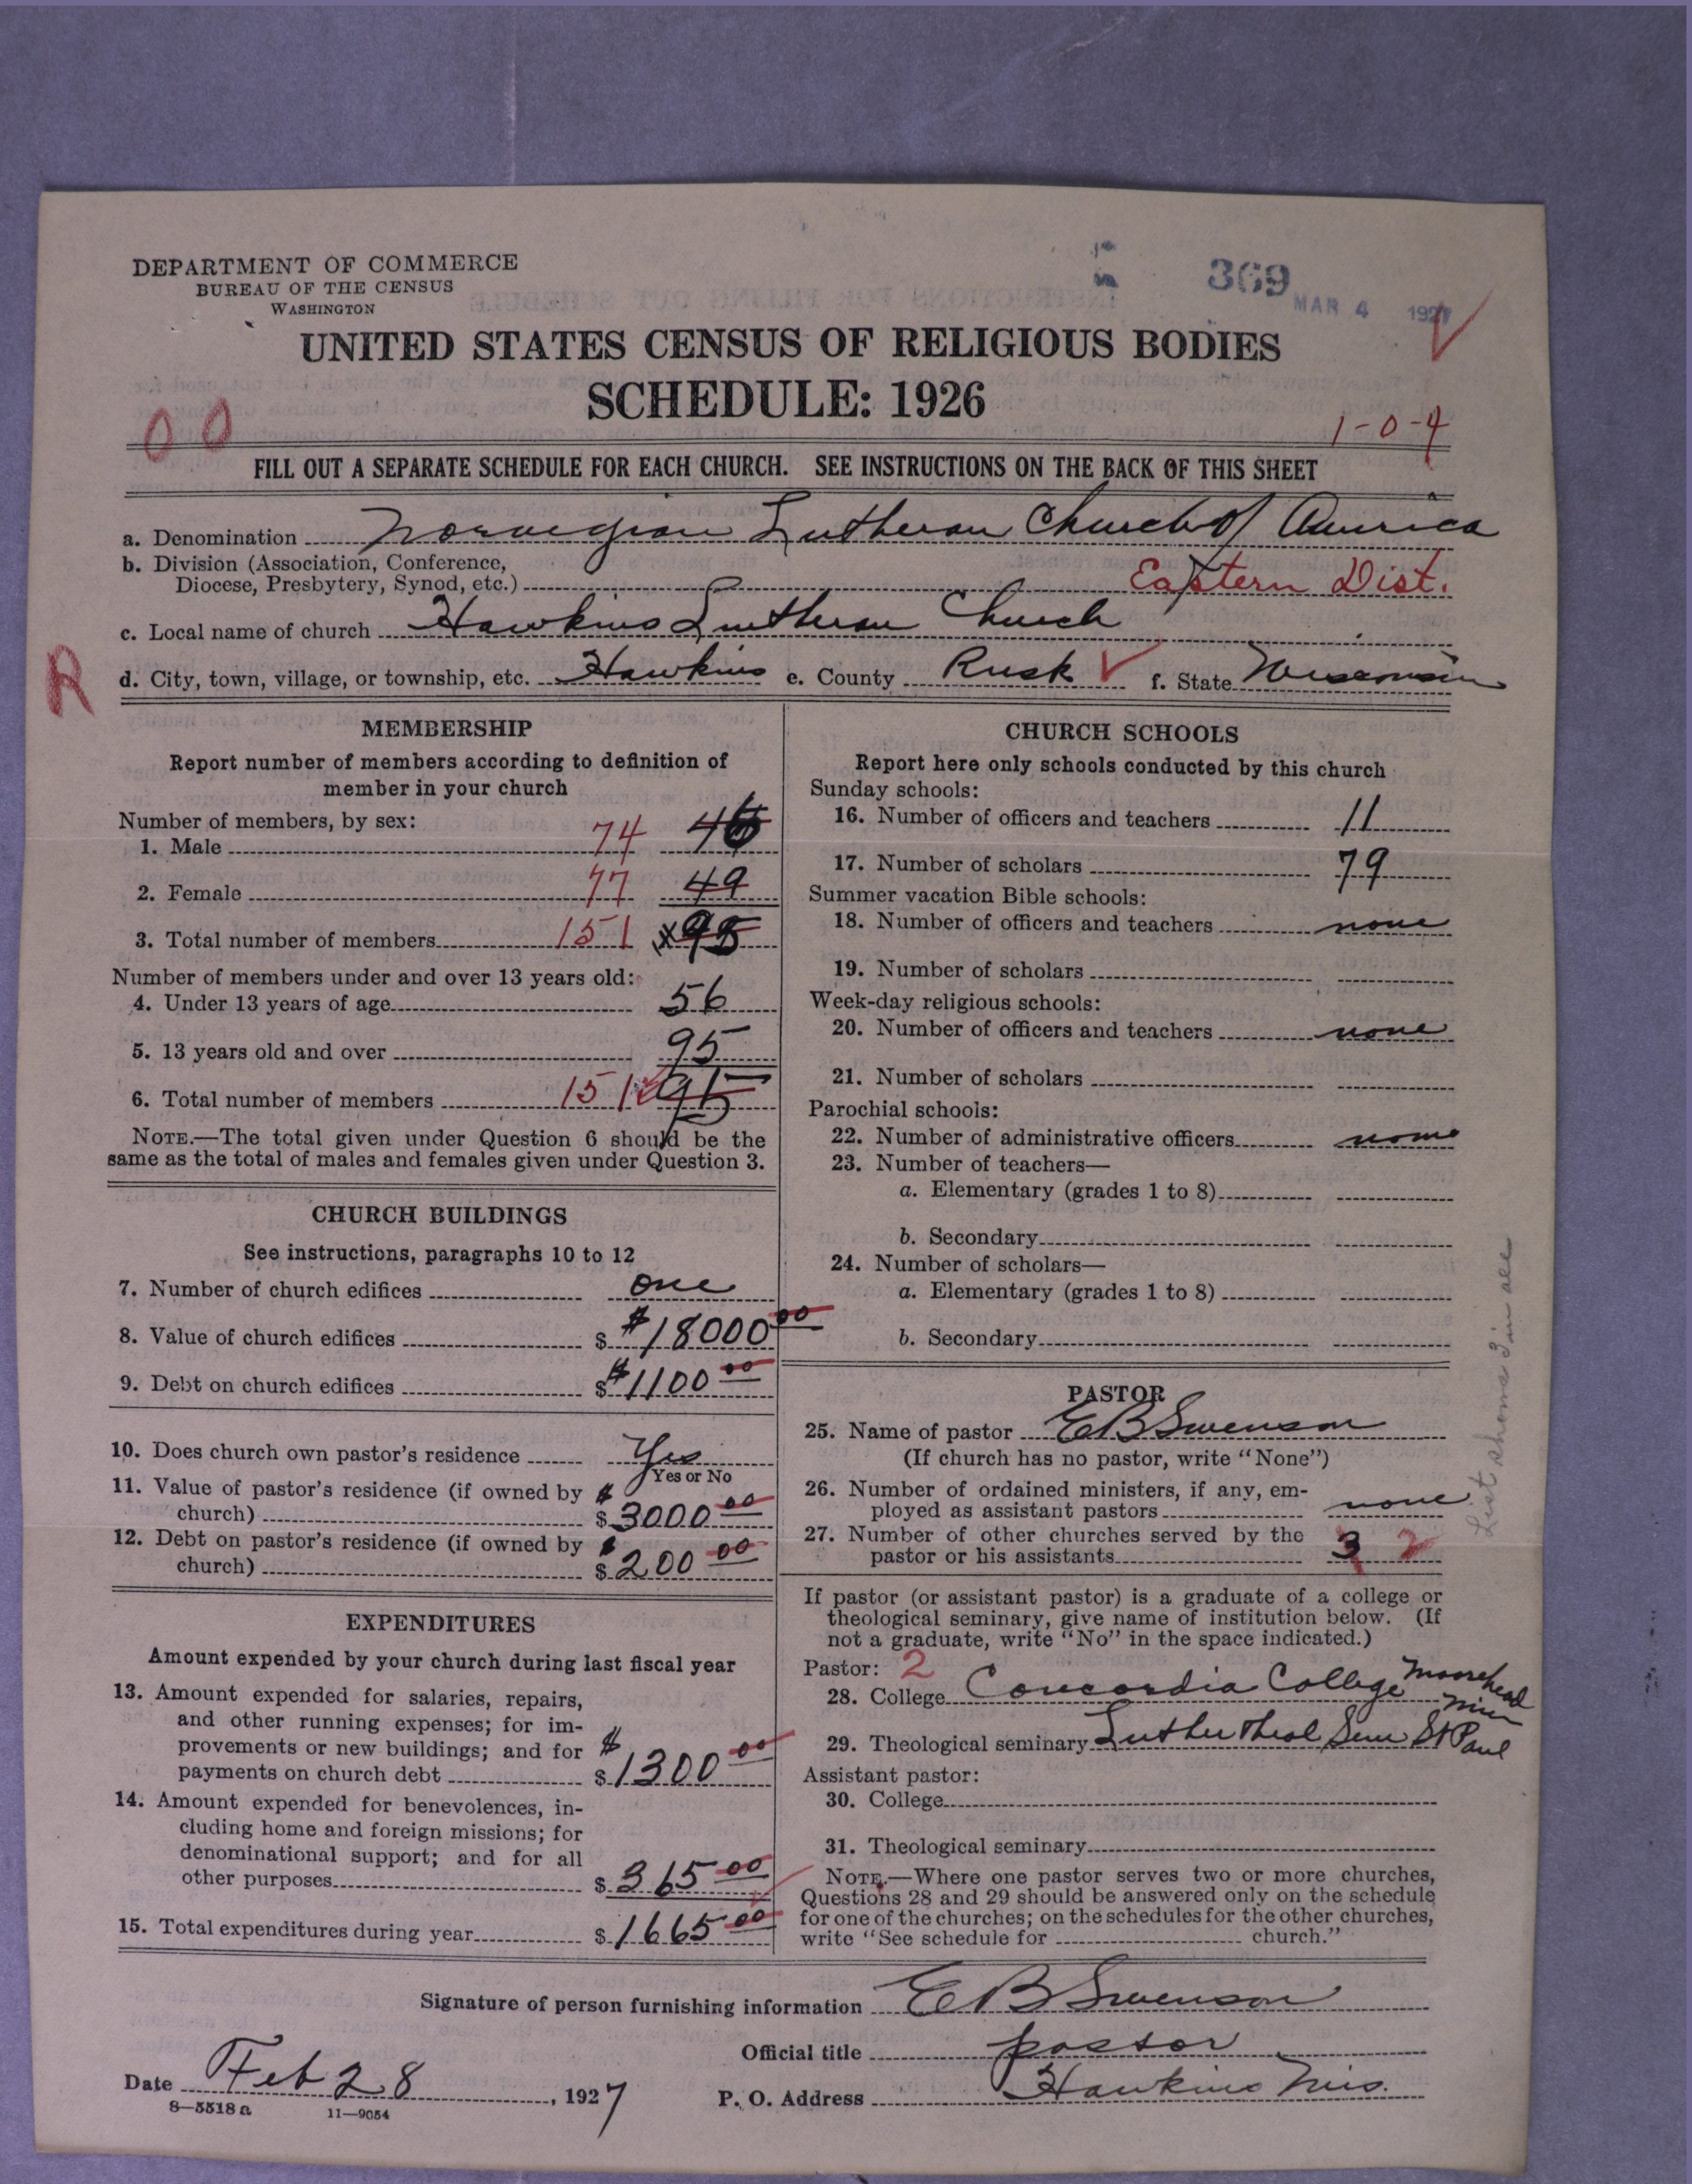 DEPARTMENT OF COMMERCE
BUREAU OF THE CENSUS
WASHINGTON
369
MAR 4 1927
UNITED STATES CENSUS OF RELIGIOUS BODIES
SCHEDULE: 1926
0 0
1-0-4
FILL OUT A SEPARATE SCHEDULE FOR EACH CHURCH. SEE INSTRUCTIONS ON THE BACK OF THIS SHEET
a. Denomination Norwegian Lutheran Church of America
b. Division (Association, Conference,
Diocese, Presbytery, Synod, etc.) Eastern Dist.
c. Local name of church Hawkins Lutheran Church
R
d. City, town, village, or township, etc. Hawkins e. County Rusk f. State Wisconsin
MEMBERSHIP
Report number of members according to definition of
member in your church
Number of members, by sex:
1. Male 74 46
2. Female 77 49
3. Total number of members 151 x95
Number of members under and over 13 years old:
4. Under 13 years of age 56
5. 13 years old and over 95
6. Total number of members 151 95
NOTE.—The total given under Question 6 should be the
same as the total of males and females given under Question 3.
CHURCH BUILDINGS
See instructions, paragraphs 10 to 12
7. Number of church edifices one
8. Value of church edifices $ $18000 00
9. Debt on church edifices $ $1100 00
10. Does church own pastor's residence Yes
Yes or No
11. Value of pastor's residence (if owned by
church) $ $3000 00
12. Debt on pastor's residence (if owned by
church) $ $200 00
EXPENDITURES
Amount expended by your church during last fiscal year
13. Amount expended for salaries, repairs,
and other running expenses; for im-
provements or new buildings; and for
payments on church debt $ $1300 00
14. Amount expended for benevolences, in-
cluding home and foreign missions; for
denominational support; and for all
other purposes $ 365 00
15. Total expenditures during year $ 1665 00
CHURCH SCHOOLS
Report here only schools conducted by this church
Sunday schools:
16. Number of officers and teachers 11
17. Number of scholars 79
Summer vacation Bible schools:
18. Number of officers and teachers none
19. Number of scholars
Week-day religious schools:
20. Number of officers and teachers none
21. Number of scholars
Parochial schools:
22. Number of administrative officers none
23. Number of teachers—
a. Elementary (grades 1 to 8)
b. Secondary
24. Number of scholars—
a. Elementary (grades 1 to 8)
b. Secondary
PASTOR
25. Name of pastor E B Swenson
(If church has no pastor, write "None")
26. Number of ordained ministers, if any, em-
ployed as assistant pastors none
27. Number of other churches served by the
pastor or his assistants 3 2
List shows 3 in all
If pastor (or assistant pastor) is a graduate of a college or
theological seminary, give name of institution below. (If
not a graduate, write "No" in the space indicated.)
Pastor: 2
28. College Concordia College Moorehead Minn
29. Theological seminary Luther Theol Sem St Paul
Assistant pastor:
30. College
31. Theological seminary
NOTE.—Where one pastor serves two or more churches,
Questions 28 and 29 should be answered only on the schedule
for one of the churches; on the schedules for the other churches,
write "See schedule for church."
Signature of person furnishing information E B Swenson
Official title pastor
Date Feb 28, 1927
P. O. Address Hawkins Wis.
8—5518 a 11—9054